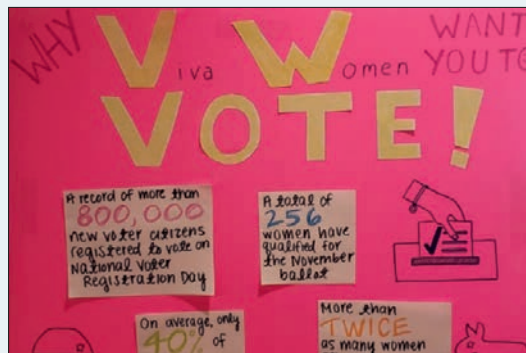 WHY Viva Women WANT
YOU TO
VOTE!
A record of more than
800,000
new voter citizens
registered to vote on
National Voter
Registration Day
A total of
256
women have
qualified for
the November
ballot
On average, only
40% of
More than
TWICE
as many women